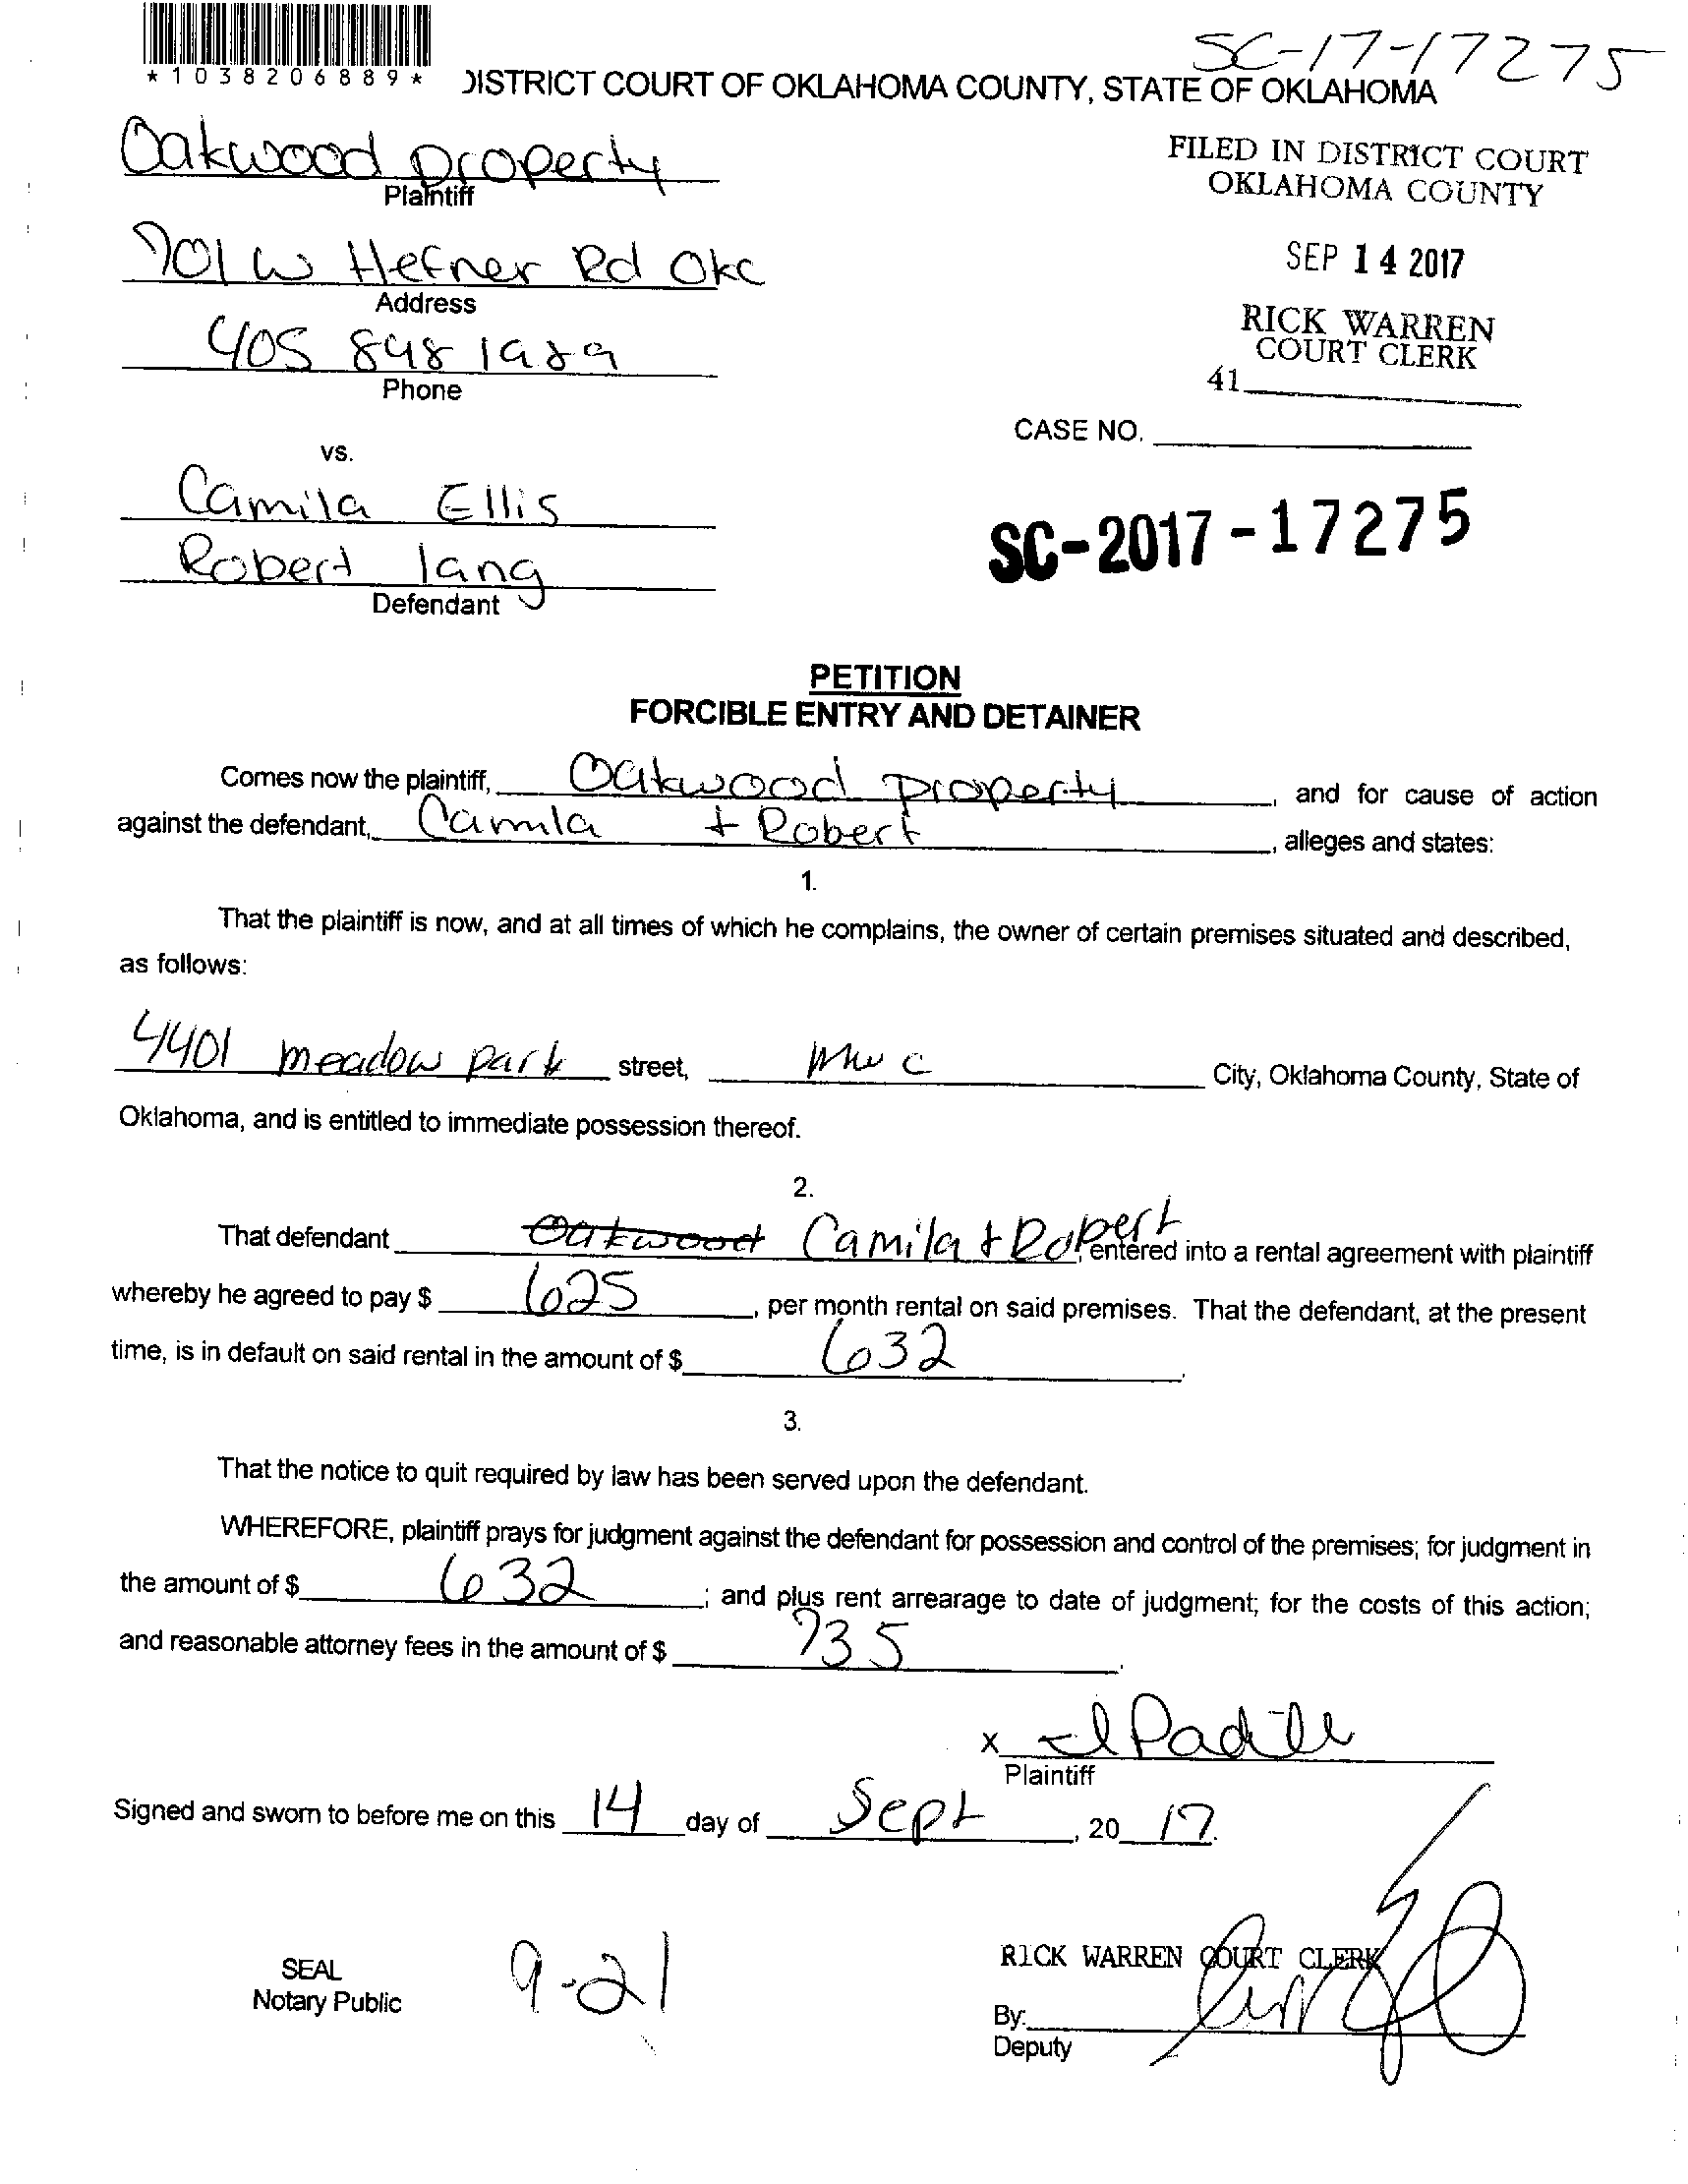 SC-17-17275
*1038206889*
DISTRICT COURT OF OKLAHOMA COUNTY, STATE OF OKLAHOMA
Oakwood property
Plaintiff
FILED IN DISTRICT COURT
OKLAHOMA COUNTY
701 W Hefner Rd OKC
Address
SEP 14 2017
405 848 1989
Phone
RICK WARREN
COURT CLERK
41
CASE NO.
vs.
Camila Ellis
Robert lang
Defendant
SC-2017-17275
PETITION
FORCIBLE ENTRY AND DETAINER
Comes now the plaintiff, Oakwood property, and for cause of action
against the defendant, Camila + Robert, alleges and states:
1.
That the plaintiff is now, and at all times of which he complains, the owner of certain premises situated and described,
as follows:
4401 meadow park street, mwc City, Oklahoma County, State of
Oklahoma, and is entitled to immediate possession thereof.
2.
That defendant Oakwood Camila + Robert, entered into a rental agreement with plaintiff
whereby he agreed to pay $ 625, per month rental on said premises. That the defendant, at the present
time, is in default on said rental in the amount of $ 632.
3.
That the notice to quit required by law has been served upon the defendant.
WHEREFORE, plaintiff prays for judgment against the defendant for possession and control of the premises; for judgment in
the amount of $ 632; and plus rent arrearage to date of judgment; for the costs of this action;
and reasonable attorney fees in the amount of $ 735.
x Padill
Plaintiff
Signed and sworn to before me on this 14 day of Sept, 20 17.
SEAL
Notary Public
9-21
RICK WARREN COURT CLERK
By:
Deputy